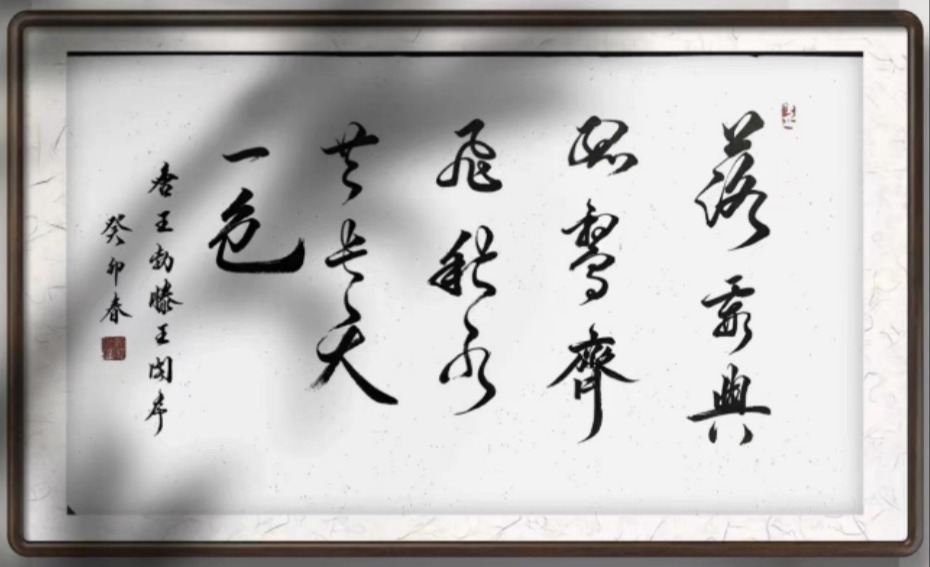 落霞與
孤鶩齊
飛秋水
共長天
一色
唐王勃滕王閣序
癸卯春